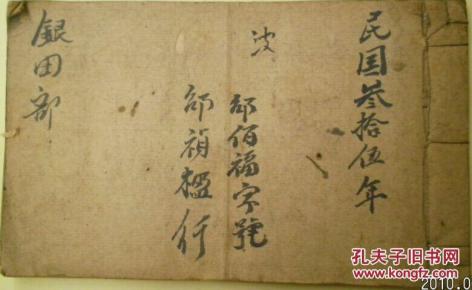 民国叁拾伍年
邵佰福字號
波
邵禎楹行
銀田部
孔夫子旧书网
www.kongfz.com
2010.0